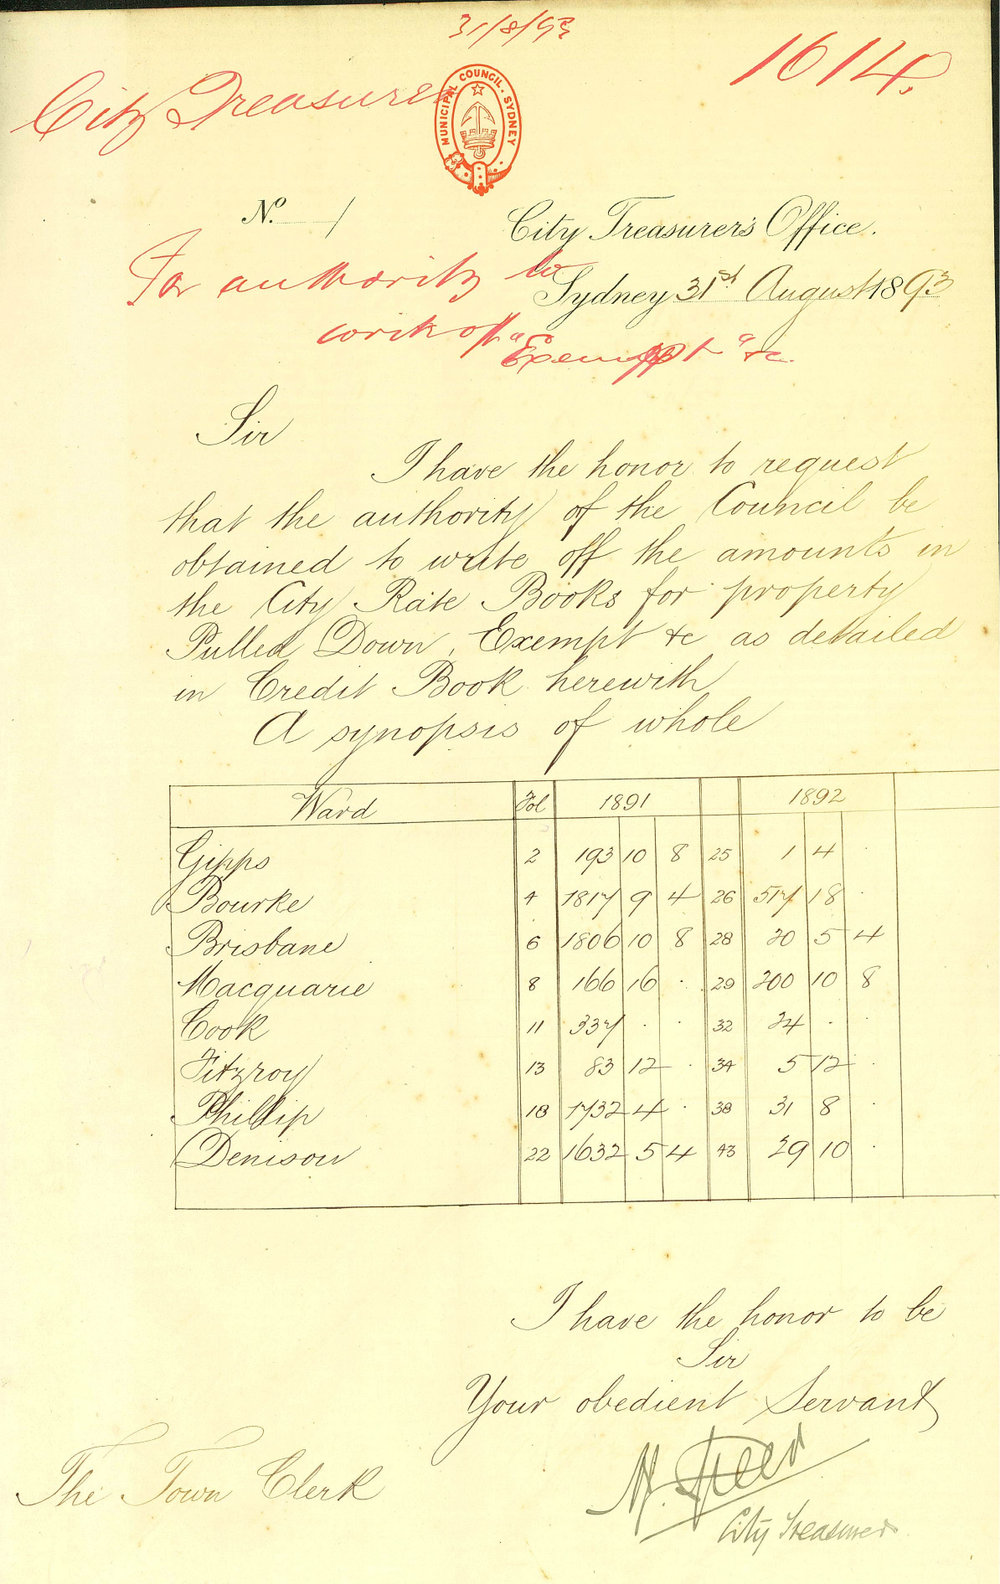 31/8/93
1614.
City Treasurer
MUNICIPAL COUNCIL. SYDNEY
No. 1
City Treasurer's Office.
For authority to
Sydney 31st August 1893
write off "Exempt" &c.
Sir
I have the honor to request
that the authority of the Council be
obtained to write off the amounts in
the City Rate Books for property
Pulled Down, Exempt &c as detailed
in Credit Book herewith
A synopsis of whole
Ward Fol 1891 1892
Gipps 2 193 10 8 25 1 4 .
Bourke 4 1817 9 4 26 517 18 .
Brisbane 6 1806 10 8 28 20 5 4
Macquarie 8 166 16 . 29 200 10 8
Cook 11 337 . . 32 24 . .
Fitzroy 13 83 12 . 34 5 12 .
Phillip 18 1732 4 . 38 31 8 .
Denison 22 1632 5 4 43 29 10 .
I have the honor to be
Sir
Your obedient Servant
City Treasurer
The Town Clerk